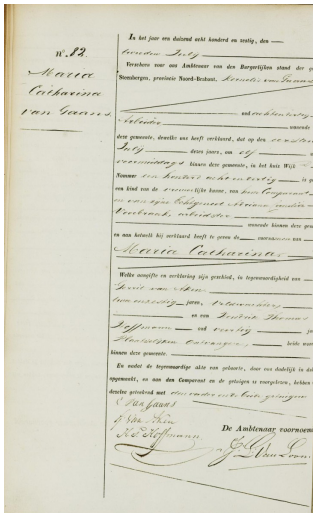 No. 82.
Maria
Catharina
van Gaans
In het jaar een duizend acht honderd en zestig, den
tienden July
Verscheen voor ons Ambtenaar van den Burgerlijken stand der ge
Steenbergen, provincie Noord-Braband. Kornelis van Gaans
oud achtentwintig
Arbeider wonende
deze gemeente, dewelke ons heeft verklaard, dat op den
July dezes jaars, om elf
voormiddags binnen deze gemeente, in het huis Wijk
Nummer een honderd acht en dertig is ge
een kind van de vrouwelijke kunne, van hem Comparant
en van zijne Echtgenoot Adriana
arbeidster
wonende binnen deze gem
en aan hetwelk hij verklaard heeft te geven de voornamen van
Maria Catharina.
Welke aangifte en verklaring zijn geschied, in tegenwoordigheid van
Gerrit van
jaren, Veldwachter
en van Hendrik Thomas
Hoffmann oud veertig ja
Plaatselijken Ontvanger, beide wone
binnen deze gemeente.
En nadat de tegenwoordige akte van geboorte, daar van dadelijk in dub
opgemaakt, en aan den Comparant en de getuigen is voorgelezen, hebben
dezelve geteekend met den vader en de beide getuigen
C Van Gaans
G Van
H. T. Hoffmann
De Ambtenaar voornoemd
Van Loon